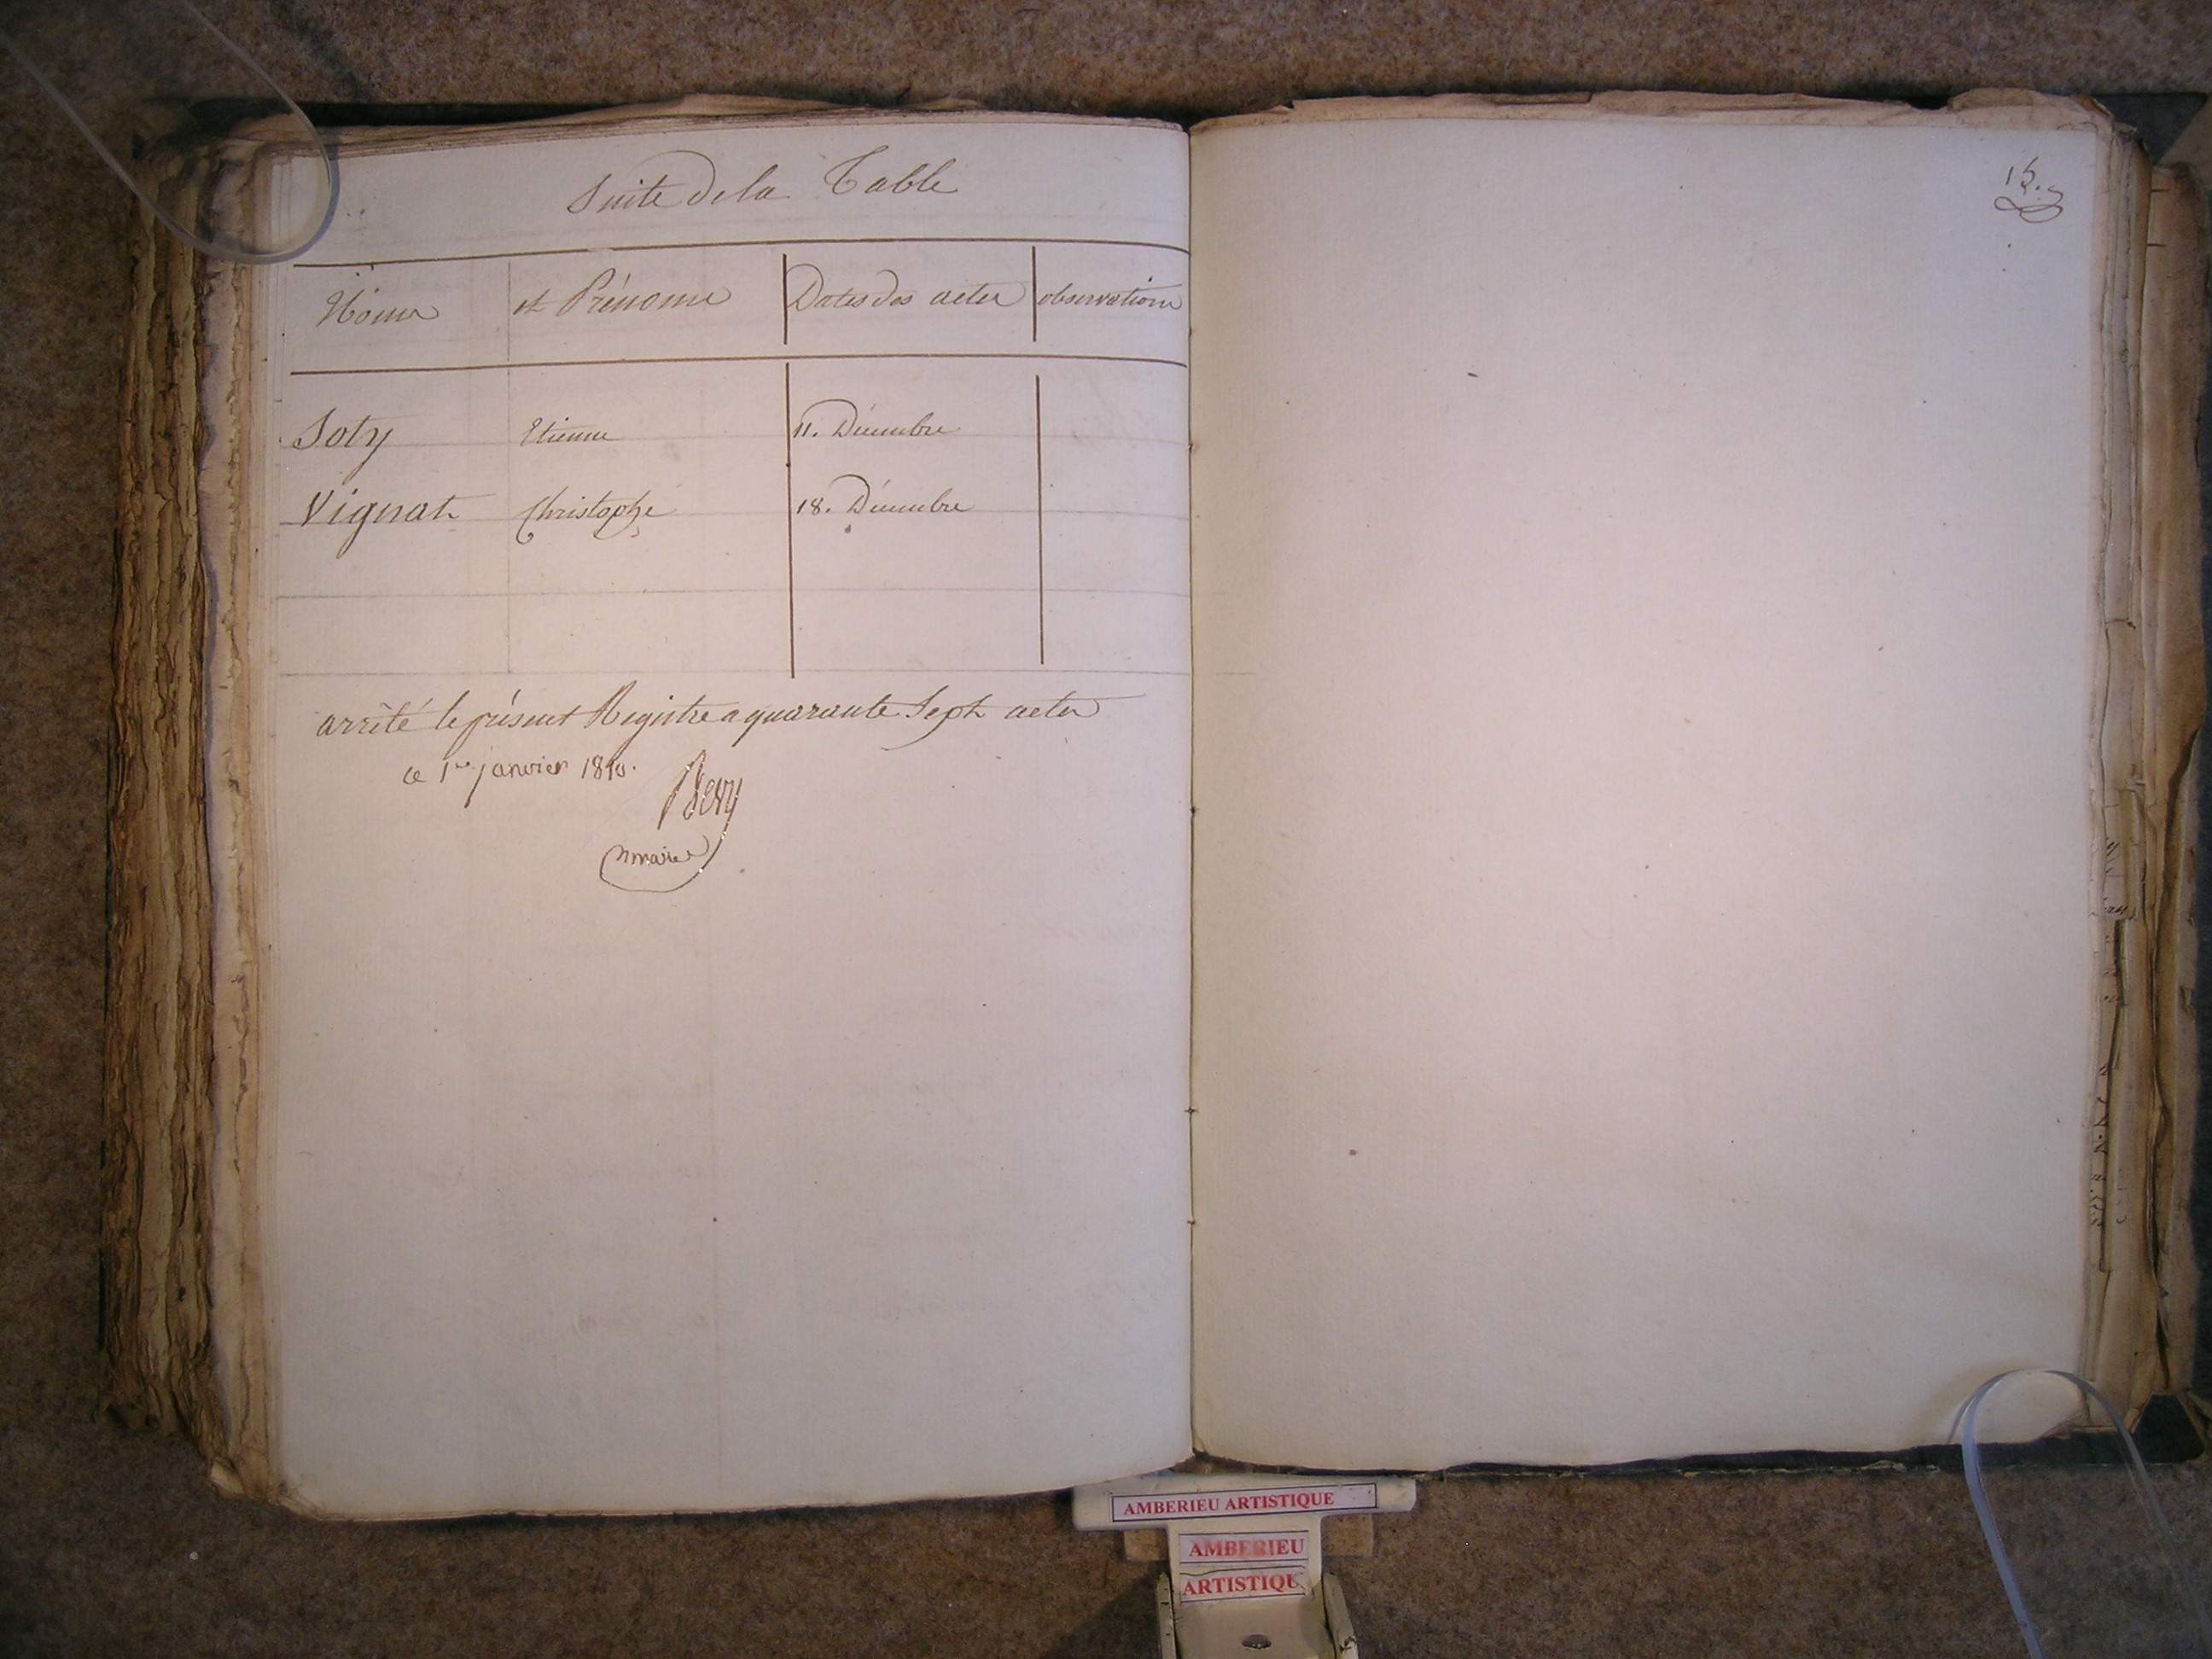 Suite de la Table
Noms et Prénoms Dates des actes observations
Soty Etienne 11. Décembre
Vignat Christophe 18. Décembre
arrêté le présent Registre a quarante Sept actes
ce 1er janvier 1810.
maire
15.
AMBERIEU ARTISTIQUE
AMBERIEU
ARTISTIQUE